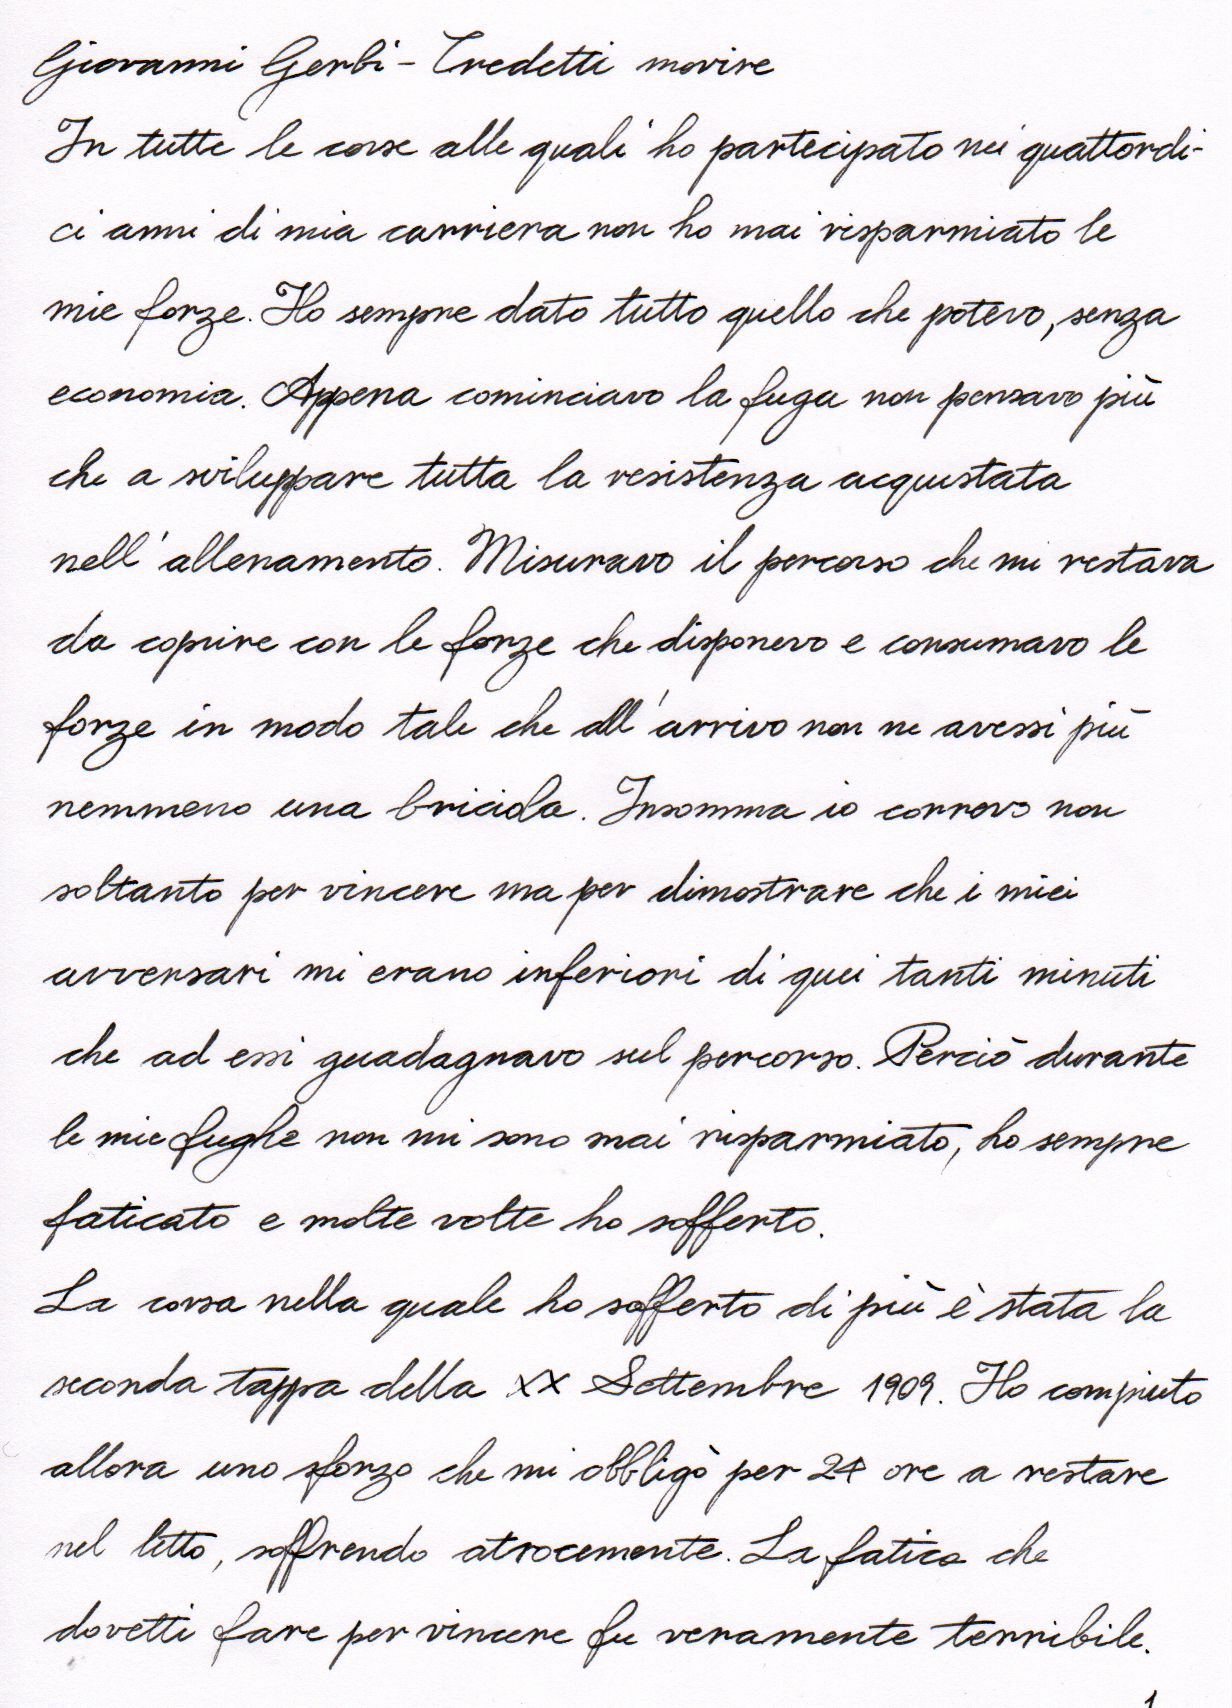 Giovanni Gerbi - Credetti morire
In tutte le corse alle quali ho partecipato nei quattordi-
ci anni di mia carriera non ho mai risparmiato le
mie forze. Ho sempre dato tutto quello che potevo, senza
economia. Appena cominciavo la fuga non pensavo più
che a sviluppare tutta la resistenza acquistata
nell'allenamento. Misuravo il percorso che mi restava
da coprire con le forze che disponevo e consumavo le
forze in modo tale che all'arrivo non ne avessi più
nemmeno una briciola. Insomma io correvo non
soltanto per vincere ma per dimostrare che i miei
avversari mi erano inferiori di quei tanti minuti
che ad essi guadagnavo sul percorso. Perciò durante
le mie fughe non mi sono mai risparmiato, ho sempre
faticato e molte volte ho sofferto.
La corsa nella quale ho sofferto di più è stata la
seconda tappa della XX Settembre 1909. Ho compiuto
allora uno sforzo che mi obbligò per 24 ore a restare
nel letto, soffrendo atrocemente. La fatica che
dovetti fare per vincere fu veramente terribile.
1